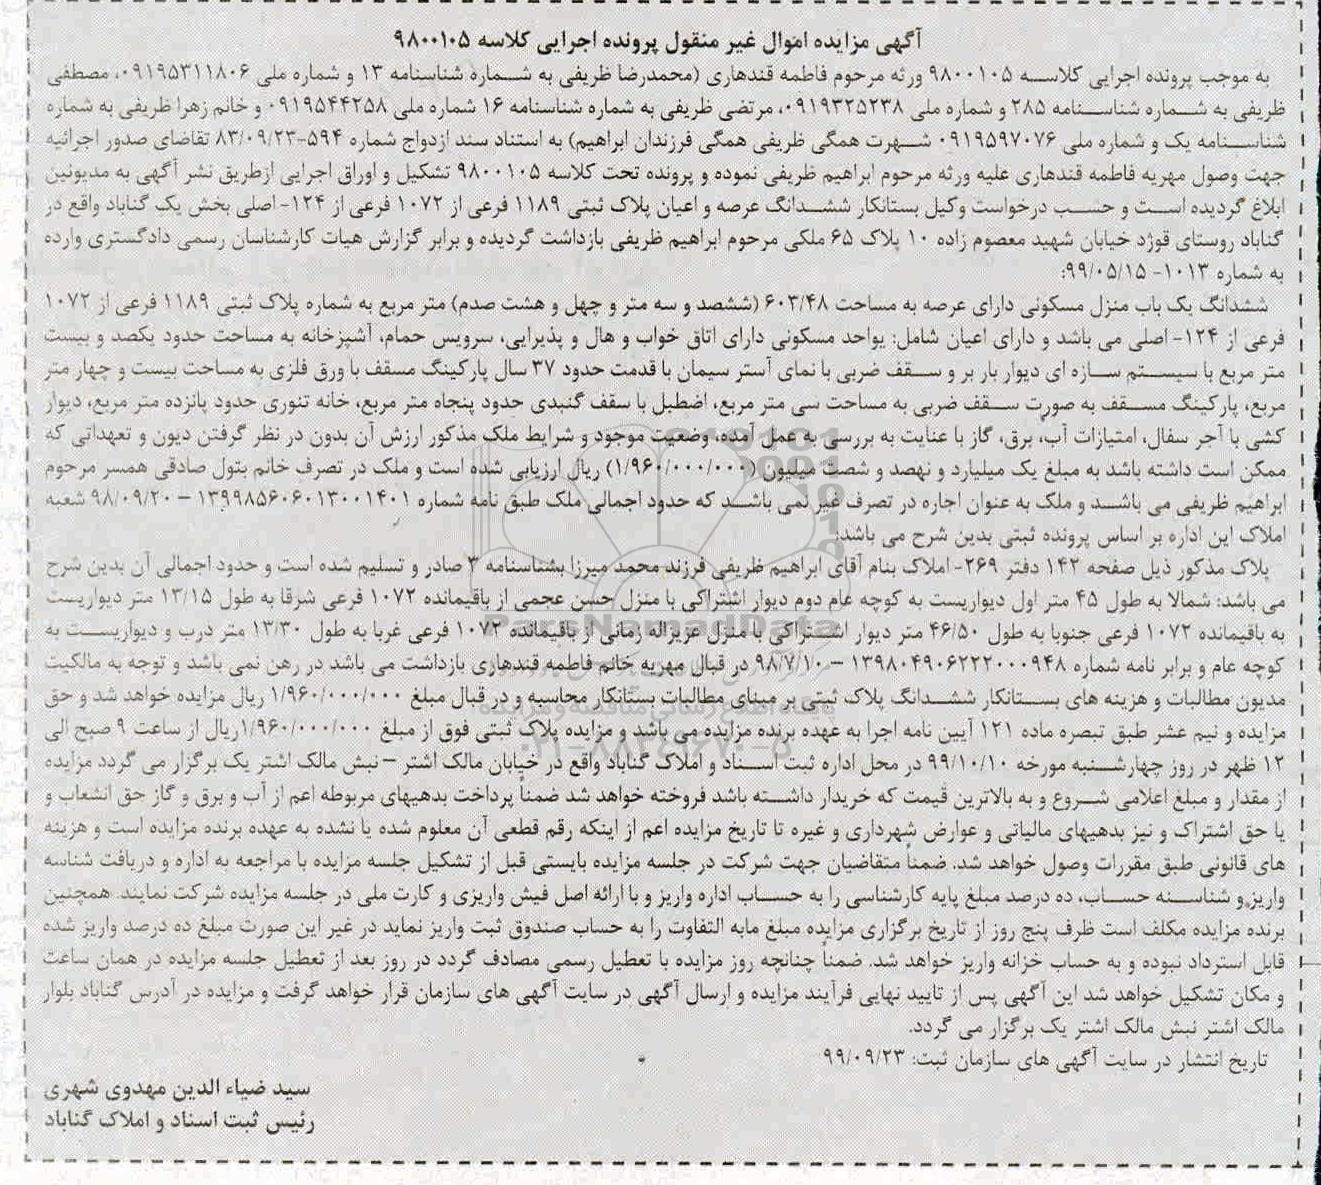 آگهی مزایده اموال غیر منقول پرونده اجرایی کلاسه ۹۸۰۰۱۰۵
به موجب پرونده اجرایی کلاسه ۹۸۰۰۱۰۵ ورثه مرحوم فاطمه قندهاری (محمدرضا ظریفی به شماره شناسنامه ۱۳ و شماره ملی ۰۹۱۹۵۳۱۱۸۰۶، مصطفی
ظریفی به شماره شناسنامه ۲۸۵ و شماره ملی ۰۹۱۹۳۲۵۲۳۸، مرتضی ظریفی به شماره شناسنامه ۱۶ شماره ملی ۰۹۱۹۵۴۴۲۵۸ و خانم زهرا ظریفی به شماره
شناسنامه یک و شماره ملی ۰۹۱۹۵۹۷۰۷۶ شهرت همگی ظریفی همگی فرزندان ابراهیم) به استناد سند ازدواج شماره ۵۹۴-۸۳/۰۹/۲۳ تقاضای صدور اجرائیه
جهت وصول مهریه فاطمه قندهاری علیه ورثه مرحوم ابراهیم ظریفی نموده و پرونده تحت کلاسه ۹۸۰۰۱۰۵ تشکیل و اوراق اجرایی ازطریق نشر آگهی به مدیونین
ابلاغ گردیده است و حسب درخواست وکیل بستانکار ششدانگ عرصه و اعیان پلاک ثبتی ۱۱۸۹ فرعی از ۱۰۷۲ فرعی از ۱۲۴- اصلی بخش یک گناباد واقع در
گناباد روستای قوژد خیابان شهید معصوم زاده ۱۰ پلاک ۶۵ ملکی مرحوم ابراهیم ظریفی بازداشت گردیده و برابر گزارش هیات کارشناسان رسمی دادگستری وارده
به شماره ۱۰۱۳- ۹۹/۰۵/۱۵:
ششدانگ یک باب منزل مسکونی دارای عرصه به مساحت ۶۰۳/۴۸ (ششصد و سه متر و چهل و هشت صدم) متر مربع به شماره پلاک ثبتی ۱۱۸۹ فرعی از ۱۰۷۲
فرعی از ۱۲۴- اصلی می باشد و دارای اعیان شامل: یواحد مسکونی دارای اتاق خواب و هال و پذیرایی، سرویس حمام، آشپزخانه به مساحت حدود یکصد و بیست
متر مربع با سیستم سازه ای دیوار بار بر و سقف ضربی با نمای آستر سیمان با قدمت حدود ۳۷ سال پارکینگ مسقف با ورق فلزی به مساحت بیست و چهار متر
مربع، پارکینگ مسقف به صورت سقف ضربی به مساحت سی متر مربع، اضطبل با سقف گنبدی حدود پنجاه متر مربع، خانه تنوری حدود پانزده متر مربع، دیوار
کشی با آجر سفال، امتیازات آب، برق، گاز با عنایت به بررسی به عمل آمده، وضعیت موجود و شرایط ملک مذکور ارزش آن بدون در نظر گرفتن دیون و تعهداتی که
ممکن است داشته باشد به مبلغ یک میلیارد و نهصد و شصت میلیون (۱/۹۶۰/۰۰۰/۰۰۰) ریال ارزیابی شده است و ملک در تصرف خانم بتول صادقی همسر مرحوم
ابراهیم ظریفی می باشد و ملک به عنوان اجاره در تصرف غیر نمی باشد که حدود اجمالی ملک طبق نامه شماره ۱۳۹۹۸۵۶۰۶۰۱۳۰۰۱۴۰۱ – ۹۸/۰۹/۲۰ شعبه
املاک این اداره بر اساس پرونده ثبتی بدین شرح می باشد:
پلاک مذکور ذیل صفحه ۱۴۲ دفتر ۲۶۹- املاک بنام آقای ابراهیم ظریفی فرزند محمد میرزا بشناسنامه ۳ صادر و تسلیم شده است و حدود اجمالی آن بدین شرح
می باشد: شمالا به طول ۴۵ متر اول دیواریست به کوچه عام دوم دیوار اشتراکی با منزل حسن عجمی از باقیمانده ۱۰۷۲ فرعی شرقا به طول ۱۳/۱۵ متر دیواریست
به باقیمانده ۱۰۷۲ فرعی جنوبا به طول ۴۶/۵۰ متر دیوار اشتراکی با منزل عزیزاله زمانی از باقیمانده ۱۰۷۲ فرعی غربا به طول ۱۳/۳۰ متر درب و دیواریست به
کوچه عام و برابر نامه شماره ۱۳۹۸۰۴۹۰۶۲۲۲۰۰۰۹۴۸ – ۹۸/۷/۱۰ در قبال مهریه خانم فاطمه قندهاری بازداشت می باشد در رهن نمی باشد و توجه به مالکیت
مدیون مطالبات و هزینه های بستانکار ششدانگ پلاک ثبتی بر مبنای مطالبات بستانکار محاسبه و در قبال مبلغ ۱/۹۶۰/۰۰۰/۰۰۰ ریال مزایده خواهد شد و حق
مزایده و نیم عشر طبق تبصره ماده ۱۲۱ آیین نامه اجرا به عهده برنده مزایده می باشد و مزایده پلاک ثبتی فوق از مبلغ ۱/۹۶۰/۰۰۰/۰۰۰ریال از ساعت ۹ صبح الی
۱۲ ظهر در روز چهارشنبه مورخه ۹۹/۱۰/۱۰ در محل اداره ثبت اسناد و املاک گناباد واقع در خیابان مالک اشتر – نبش مالک اشتر یک برگزار می گردد مزایده
از مقدار و مبلغ اعلامی شروع و به بالاترین قیمت که خریدار داشته باشد فروخته خواهد شد ضمناً پرداخت بدهیهای مربوطه اعم از آب و برق و گاز حق انشعاب و
یا حق اشتراک و نیز بدهیهای مالیاتی و عوارض شهرداری و غیره تا تاریخ مزایده اعم از اینکه رقم قطعی آن معلوم شده یا نشده به عهده برنده مزایده است و هزینه
های قانونی طبق مقررات وصول خواهد شد. ضمناً متقاضیان جهت شرکت در جلسه مزایده بایستی قبل از تشکیل جلسه مزایده با مراجعه به اداره و دریافت شناسه
واریز و شناسنه حساب، ده درصد مبلغ پایه کارشناسی را به حساب اداره واریز و با ارائه اصل فیش واریزی و کارت ملی در جلسه مزایده شرکت نمایند. همچنین
برنده مزایده مکلف است ظرف پنج روز از تاریخ برگزاری مزایده مبلغ مابه التفاوت را به حساب صندوق ثبت واریز نماید در غیر این صورت مبلغ ده درصد واریز شده
قابل استرداد نبوده و به حساب خزانه واریز خواهد شد. ضمناً چنانچه روز مزایده با تعطیل رسمی مصادف گردد در روز بعد از تعطیل جلسه مزایده در همان ساعت
و مکان تشکیل خواهد شد این آگهی پس از تایید نهایی فرآیند مزایده و ارسال آگهی در سایت آگهی های سازمان قرار خواهد گرفت و مزایده در آدرس گناباد بلوار
مالک اشتر نبش مالک اشتر یک برگزار می گردد.
تاریخ انتشار در سایت آگهی های سازمان ثبت: ۹۹/۰۹/۲۳
سید ضیاء الدین مهدوی شهری
رئیس ثبت اسناد و املاک گناباد
ParsNamadData
۰۲۱-۸۸۳۴۹۶۷۰-۵